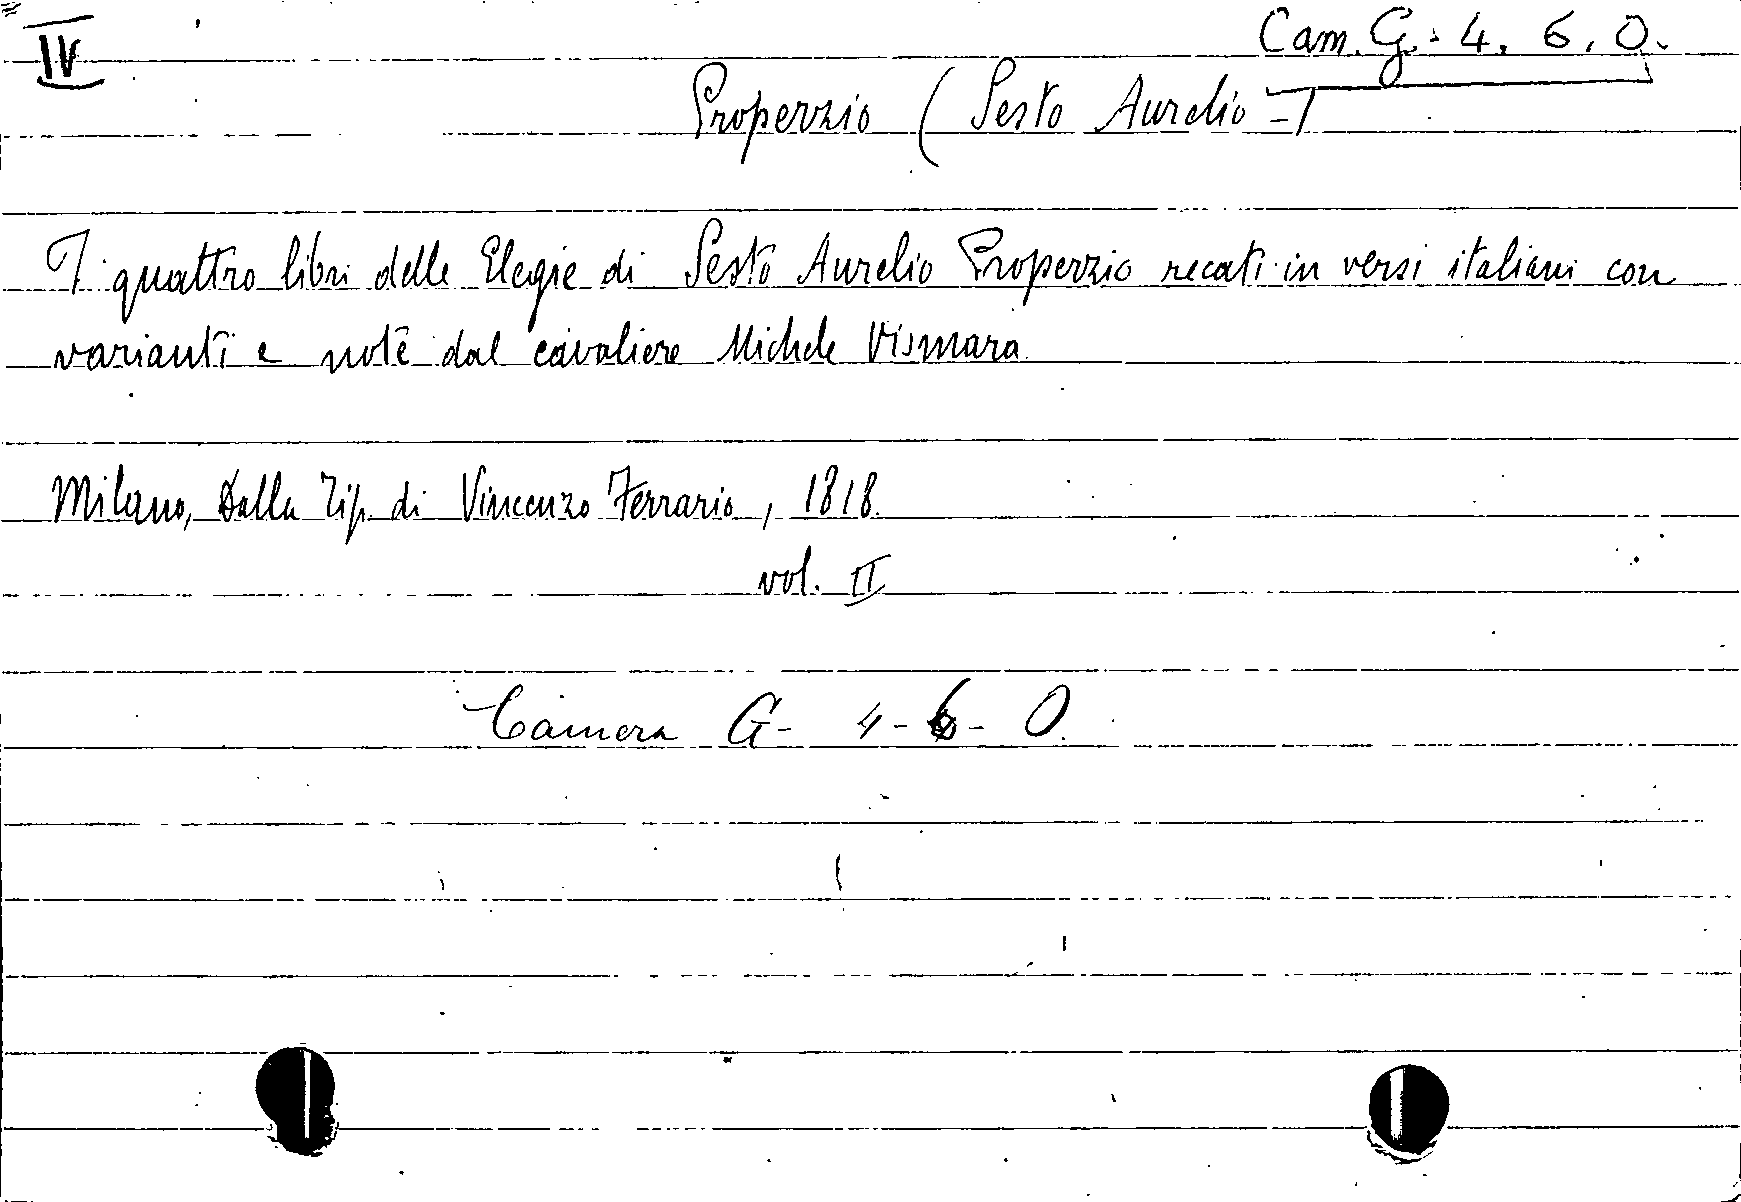 IV
Cam. G. 4. 6. O.
Properzio (Sesto Aurelio -)
I quattro libri delle Elegie di Sesto Aurelio Properzio recati in versi italiani con
varianti e note dal cavaliere Michele Vismara
Milano, Dalla Tip. di Vincenzo Ferrario, 1818.
vol. II
Camera G- 4-6- O.